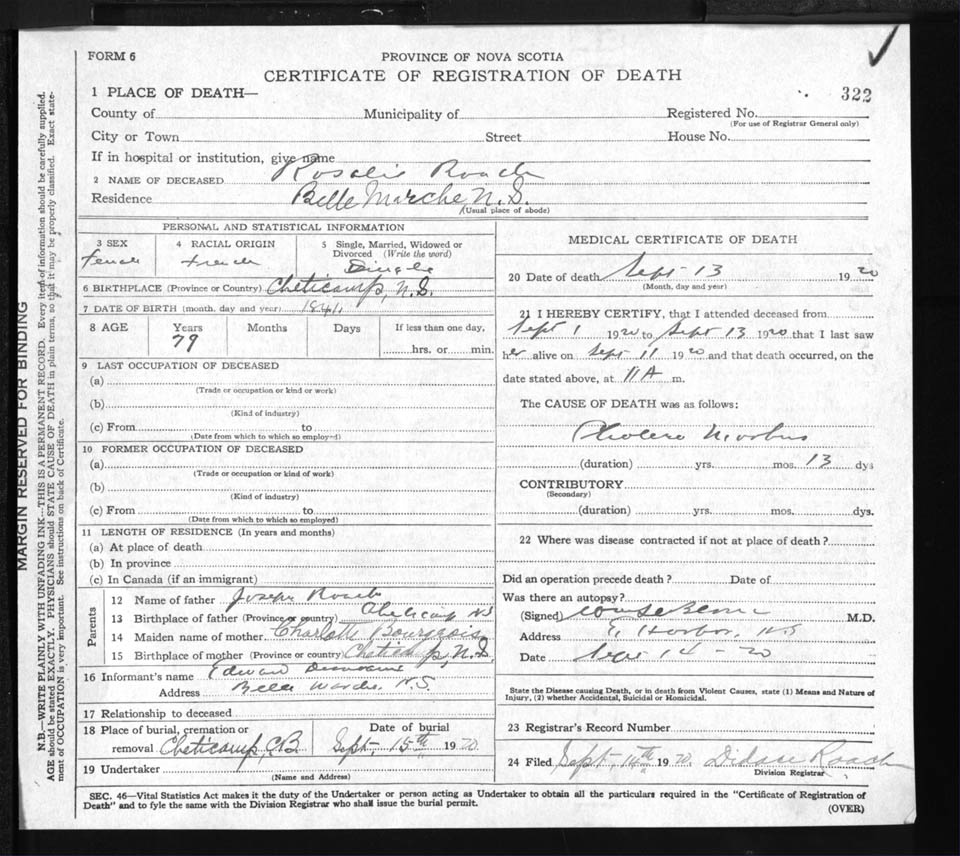 FORM 6
PROVINCE OF NOVA SCOTIA
CERTIFICATE OF REGISTRATION OF DEATH
322
1 PLACE OF DEATH—
County of Municipality of Registered No.
(For use of Registrar General only)
City or Town Street House No.
If in hospital or institution, give name
2 NAME OF DECEASED Rosalie Roach
Residence Belle Marche, N.S.
(Usual place of abode)
PERSONAL AND STATISTICAL INFORMATION
3 SEX 4 RACIAL ORIGIN 5 Single, Married, Widowed or
Divorced (Write the word)
Female French Single
6 BIRTHPLACE (Province or Country) Cheticamp, N.S.
7 DATE OF BIRTH (month, day and year) 1841
8 AGE Years Months Days If less than one day,
79
hrs. or min.
9 LAST OCCUPATION OF DECEASED
(a)
(Trade or occupation or kind or work)
(b)
(Kind of industry)
(c) From to
(Date from which to which so employed)
10 FORMER OCCUPATION OF DECEASED
(a)
(Trade or occupation or kind of work)
(b)
(Kind of industry)
(c) From to
(Date from which to which so employed)
11 LENGTH OF RESIDENCE (In years and months)
(a) At place of death
(b) In province
(c) In Canada (if an immigrant)
Parents
12 Name of father Joseph Roach
13 Birthplace of father (Province or country) Cheticamp N.S
14 Maiden name of mother Charlotte Bourgeois
15 Birthplace of mother (Province or country) Cheticamp, N.S
16 Informant's name Edward
Address Belle Marche, N.S.
17 Relationship to deceased
18 Place of burial, cremation or Date of burial
removal Cheticamp, C.B. Sept, 15th 1920.
19 Undertaker
(Name and Address)
MEDICAL CERTIFICATE OF DEATH
20 Date of death Sept 13 1920
(Month, day and year)
21 I HEREBY CERTIFY, that I attended deceased from
Sept 1 1920 to Sept 13 1920 that I last saw
her alive on Sept 11 1920 and that death occurred, on the
date stated above, at 11 A m.
The CAUSE OF DEATH was as follows:
Cholera Morbus
(duration) yrs. mos. 13 dys
CONTRIBUTORY
(Secondary)
(duration) yrs. mos. dys.
22 Where was disease contracted if not at place of death?
Did an operation precede death? Date of
Was there an autopsy?
(Signed) M.D.
Address E. Harbor, N.S
Date Sept 14 - 20
State the Disease causing Death, or in death from Violent Causes, state (1) Means and Nature of
Injury, (2) whether Accidental, Suicidal or Homicidal.
23 Registrar's Record Number
24 Filed Sept, 1920. Roach
Division Registrar
SEC. 46—Vital Statistics Act makes it the duty of the Undertaker or person acting as Undertaker to obtain all the particulars required in the "Certificate of Registration of
Death" and to fyle the same with the Division Registrar who shall issue the burial permit.
(OVER)
MARGIN RESERVED FOR BINDING
N.B.—WRITE PLAINLY WITH UNFADING INK—THIS IS A PERMANENT RECORD. Every item of information should be carefully supplied.
AGE should be stated EXACTLY. PHYSICIANS should STATE CAUSE OF DEATH in plain terms, so that it may be properly classified. Exact state-
ment of OCCUPATION is very important. See instructions on back of Certificate.